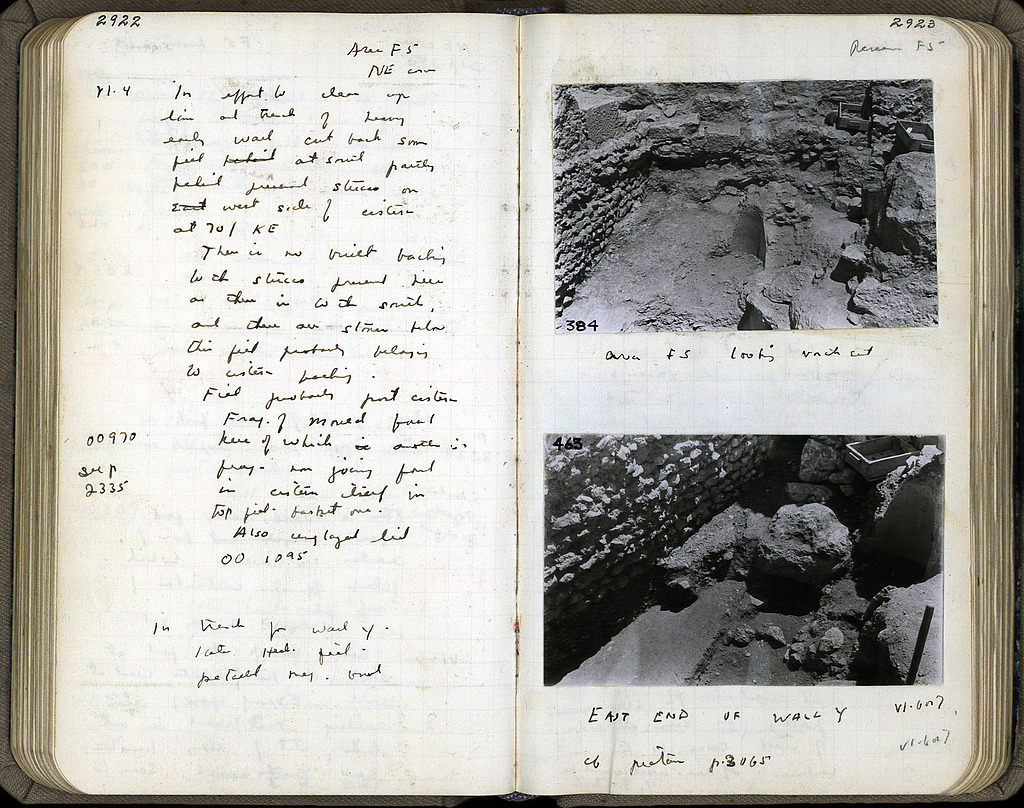 2922
Area F5
NE corner
VI.4 In effort to clean up
line and trench of heavy
early wall cut back some
fill at south partly
behind preserved stucco on
west side of cistern
at 70/ KE
There is no built backing
to the stucco preserved here
as there is to the south,
and there are stones below
this fill probably belongs
to cistern packing.
Fill probably post cistern
Frag. of mould
00970 here of which is another
See p frag. non joining found
2335 in cistern itself in
top fill. basket one.
Also unglazed lid
00 1095
In trench for wall y.
late Hell. fill.
petalled meg. bowl
2923
F5
384
area F5 looking north east
463
EAST END OF WALL Y VI.6 or 7
VI.6 or 7
cf picture p.3065